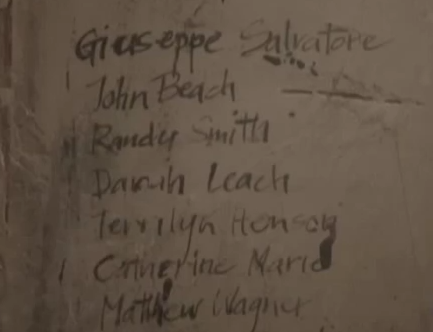 Giuseppe Salvatore
John Beach
Randy Smith
Darwin Leach
Terrilyn Henson
Catherine Marie
Matthew Wagner